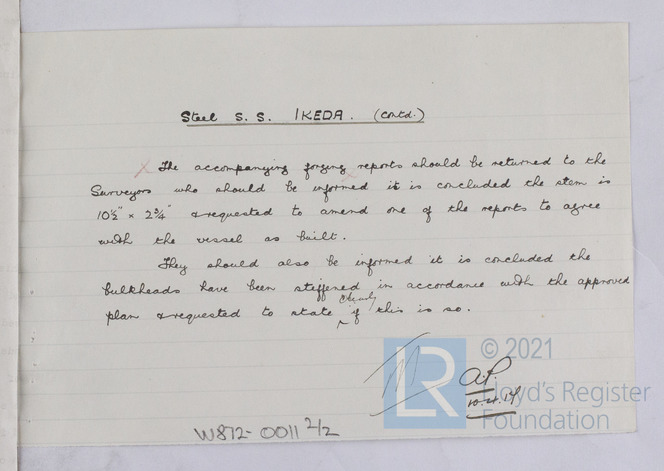 Steel S. S. IKEDA. (Contd.)
X The accompanying forging reports should be returned to the
Surveyors who should be informed it is concluded the stem is
10½" x 2¾" & requested to amend one of the reports to agree
with the vessel as built.
They should also be informed it is concluded the
bulkheads have been stiffened in accordance with the approved
plan & requested to state clearly if this is so.
LR © 2021
Lloyd's Register
Foundation
A.P.
10.4.14
W872-0011 2/2